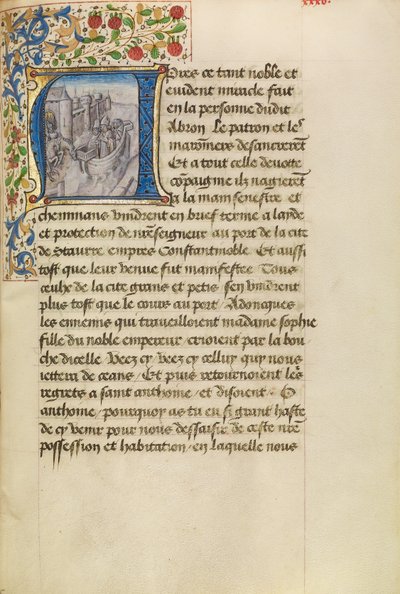 xxxv.
Apres ce tant noble et
euident miracle fait
en la personne dudit
Abron Le patron et les
maronniers desancrerent
Et a tout celle deuotte
compaignie ilz nagierent
A la main senestre et
cheminans vindrent en brief terme a laide
et protection de nre seigneur au port de la cite
de Staurre empres Constantinoble Et aussi
tost que leur venue fut manifestee Tous
ceulx de la cite grans et petis sen vindrent
plus tost que le cours au port / Adoncques
les ennemis qui trauueilloient madame sophie
fille du noble empereur crioient par la bou
che dicelle Veez cy veez celluy quy nous
iettera de ceans / Et puis retournoient les
regrets a saint anthoine / et disoient O
anthoine / pourquoy as tu eu si grant haste
de cy venir pour nous dessaisir de ceste nre
possession et habitation / en laquelle nous